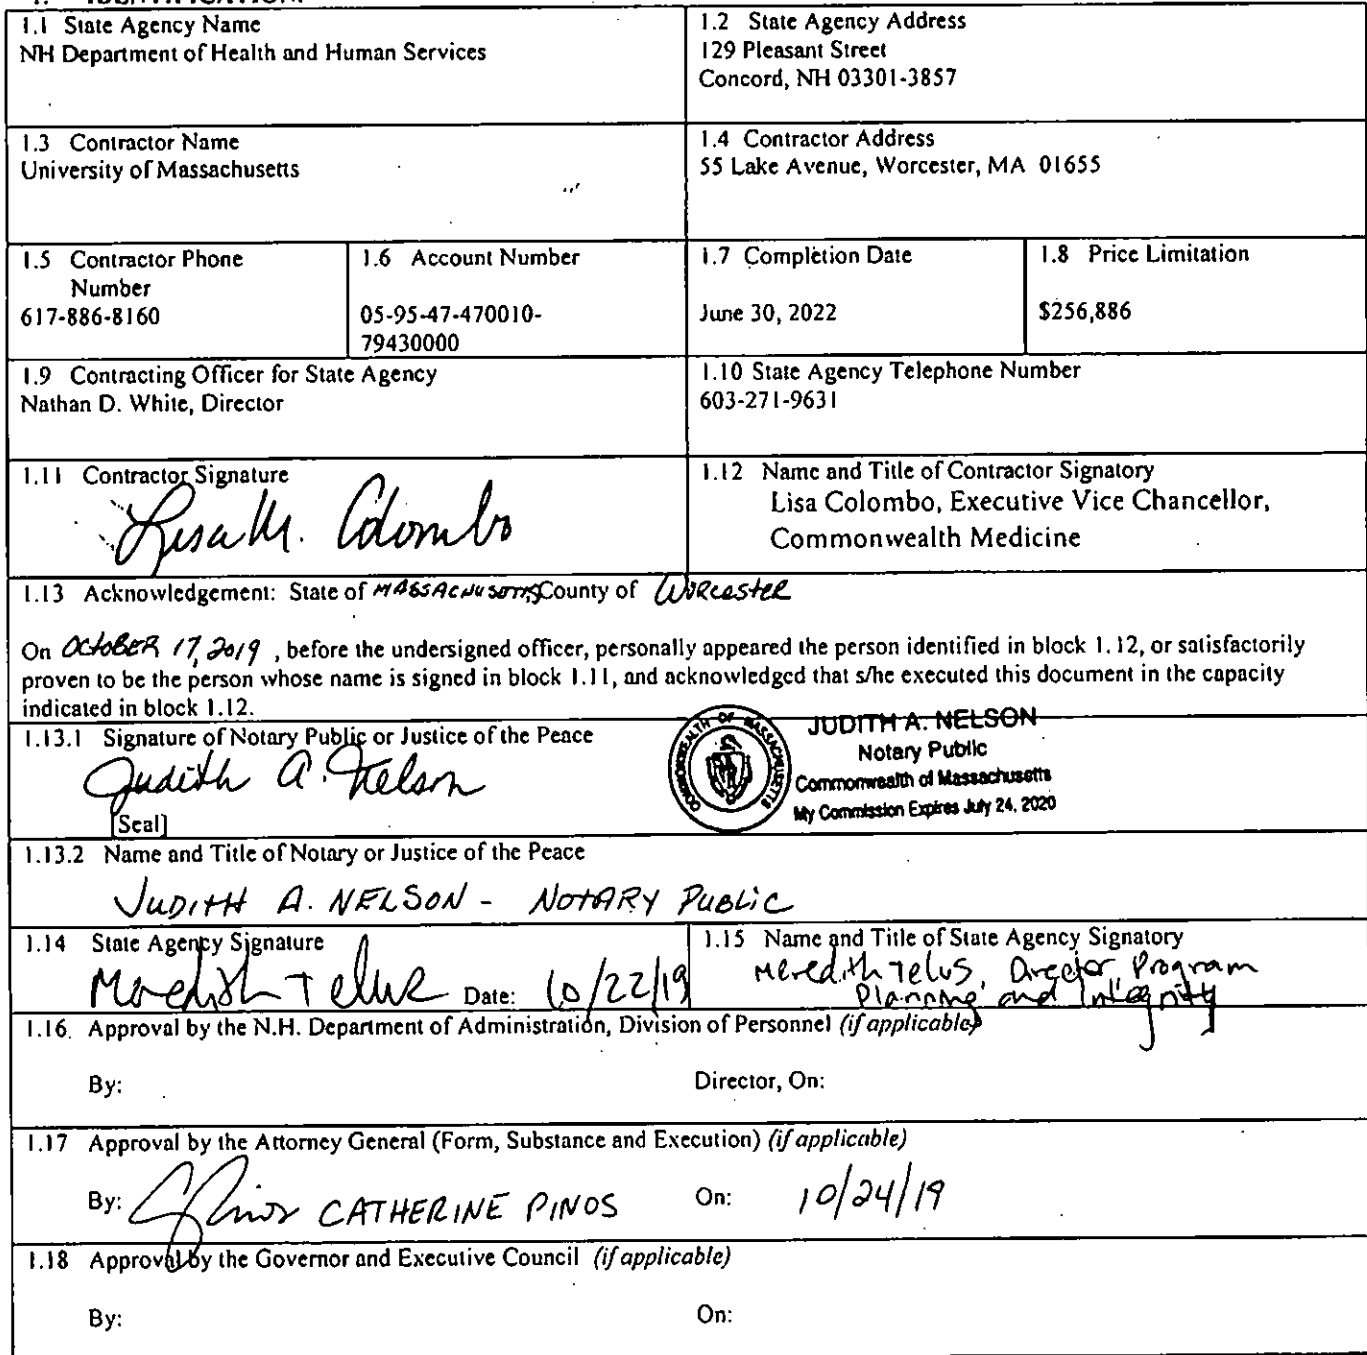 1. IDENTIFICATION.
1.1 State Agency Name
NH Department of Health and Human Services
1.2 State Agency Address
129 Pleasant Street
Concord, NH 03301-3857
1.3 Contractor Name
University of Massachusetts
1.4 Contractor Address
55 Lake Avenue, Worcester, MA 01655
1.5 Contractor Phone
Number
617-886-8160
1.6 Account Number
05-95-47-470010-
79430000
1.7 Completion Date
June 30, 2022
1.8 Price Limitation
$256,886
1.9 Contracting Officer for State Agency
Nathan D. White, Director
1.10 State Agency Telephone Number
603-271-9631
1.11 Contractor Signature
Lisa M. Colombo
1.12 Name and Title of Contractor Signatory
Lisa Colombo, Executive Vice Chancellor,
Commonwealth Medicine
1.13 Acknowledgement: State of MASSACHUSETTS County of WORCESTER
On OCTOBER 17, 2019 , before the undersigned officer, personally appeared the person identified in block 1.12, or satisfactorily
proven to be the person whose name is signed in block 1.11, and acknowledged that s/he executed this document in the capacity
indicated in block 1.12.
1.13.1 Signature of Notary Public or Justice of the Peace
Judith A. Nelson
[Seal]
COMMONWEALTH OF MASSACHUSETTS
JUDITH A. NELSON
Notary Public
Commonwealth of Massachusetts
My Commission Expires July 24, 2020
1.13.2 Name and Title of Notary or Justice of the Peace
JUDITH A. NELSON - NOTARY PUBLIC
1.14 State Agency Signature
Meredith Telus Date: 10/22/19
1.15 Name and Title of State Agency Signatory
Meredith Telus, Director, Program
Planning and Integrity
1.16. Approval by the N.H. Department of Administration, Division of Personnel (if applicable)
By: Director, On:
1.17 Approval by the Attorney General (Form, Substance and Execution) (if applicable)
By: CPinos CATHERINE PINOS On: 10/24/19
1.18 Approval by the Governor and Executive Council (if applicable)
By: On: